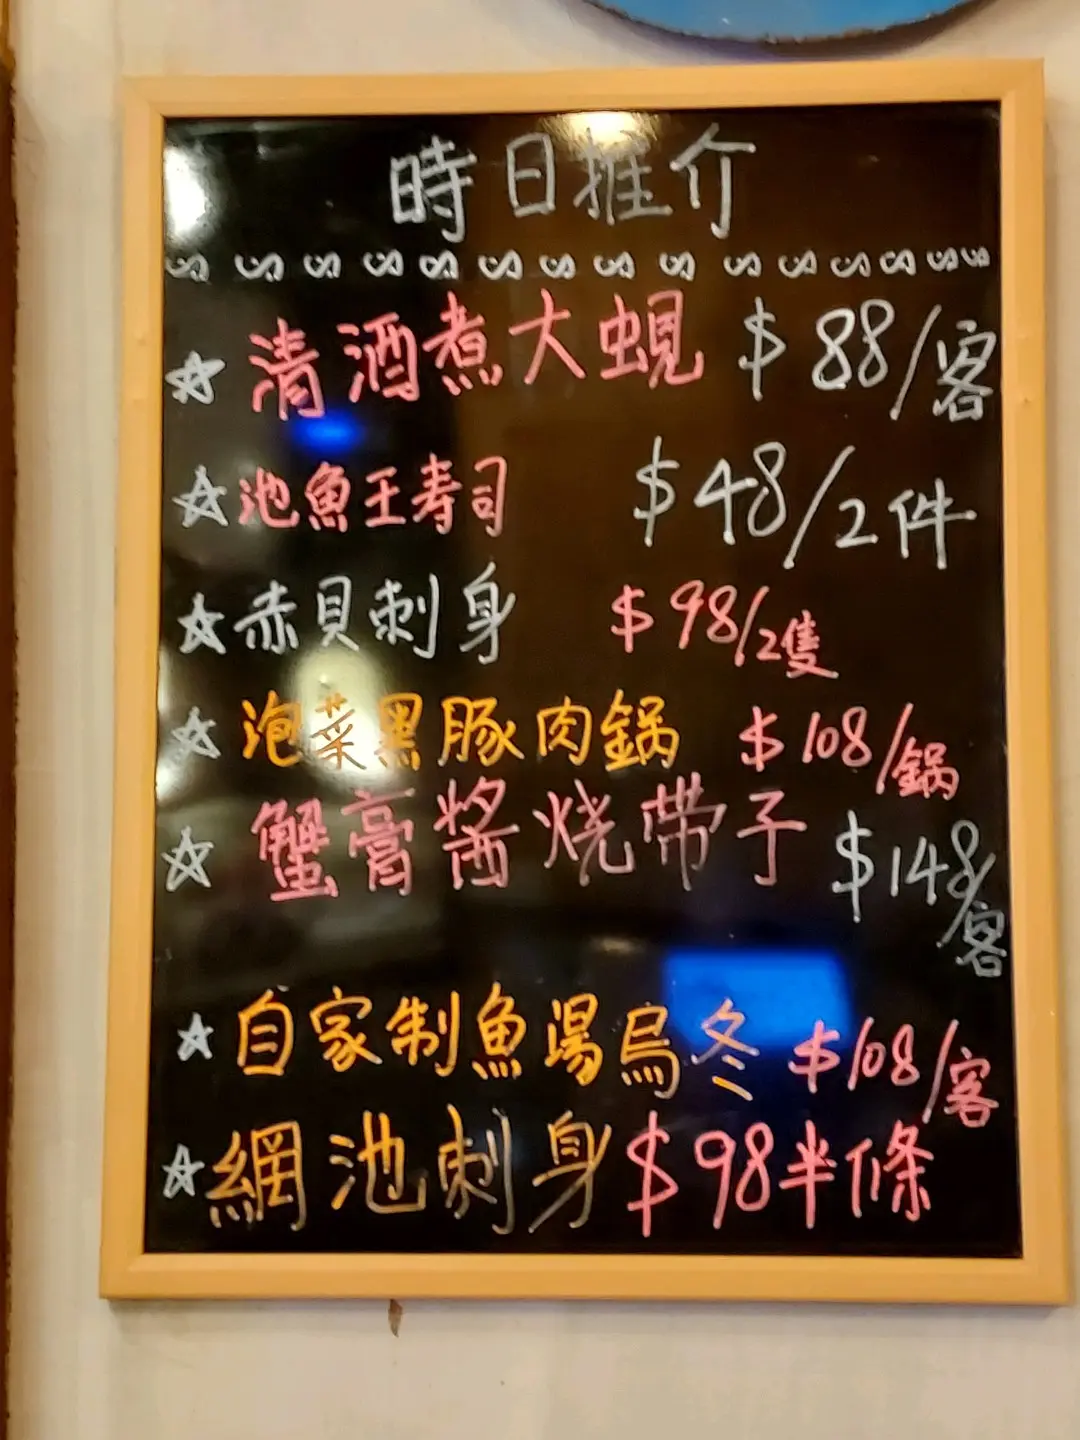 時日推介
☆ 清酒煮大蜆 $88/客
☆ 池魚王寿司 $48/2件
☆ 赤貝刺身 $98/2隻
☆ 泡菜黑豚肉鍋 $108/鍋
☆ 蟹膏醬燒帶子 $148/客
☆ 自家制魚湯烏冬 $108/客
☆ 網池刺身 $98半條